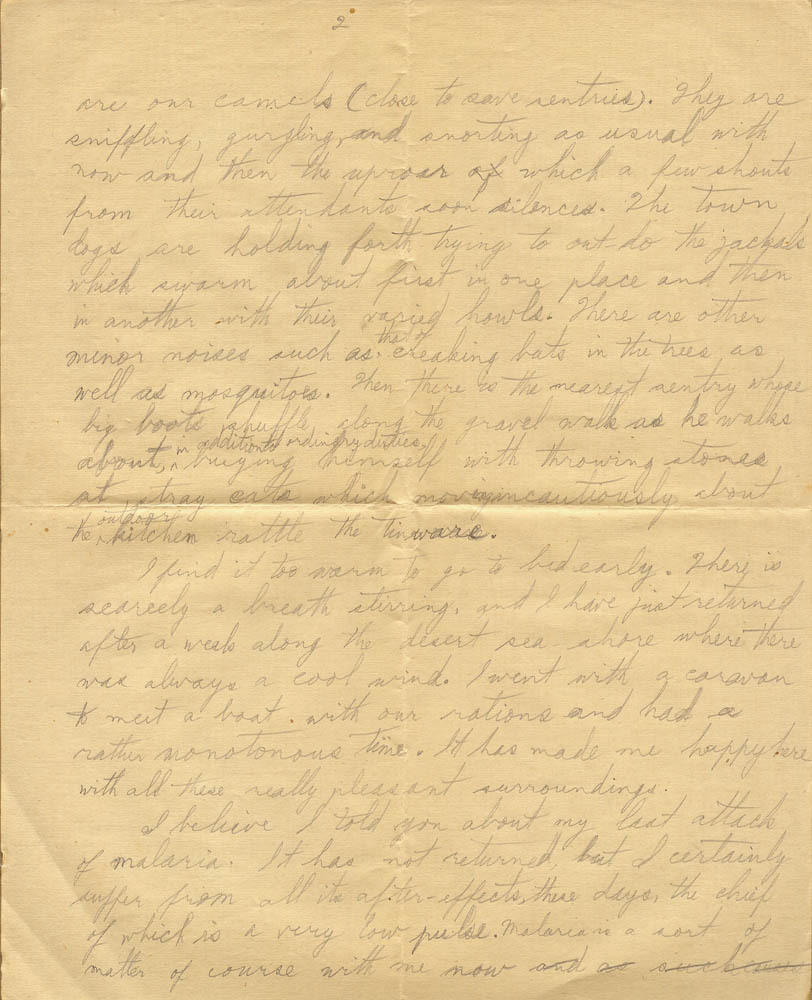 2
are our camels (close to save sentries). They are
sniffling, gurgling, and snorting as usual with
now and then the uproar of which a few shouts
from their attendants soon silences. The town
dogs are holding forth trying to out-do the jackals
which swarm about first in one place and then
in another with their varied howls. There are other
minor noises such as that of creaking bats in the trees as
well as mosquitoes. Then there is the nearest sentry whose
big boots shuffle along the gravel walk as he walks
about, in addition to ordinary duties, busying himself with throwing stones
at stray cats which moving incautiously about
the outdoor kitchen rattle the tinware.
I find it too warm to go to bed early. There is
scarcely a breath stirring, and I have just returned
after a week along the desert sea shore where there
was always a cool wind. I went with a caravan
to meet a boat with our rations and had a
rather monotonous time. It has made me happy here
with all these really pleasant surroundings.
I believe I told you about my last attack
of malaria. It has not returned, but I certainly
suffer from all its after-effects these days, the chief
of which is a very low pulse. Malaria is a sort of
matter of course with me now and as such